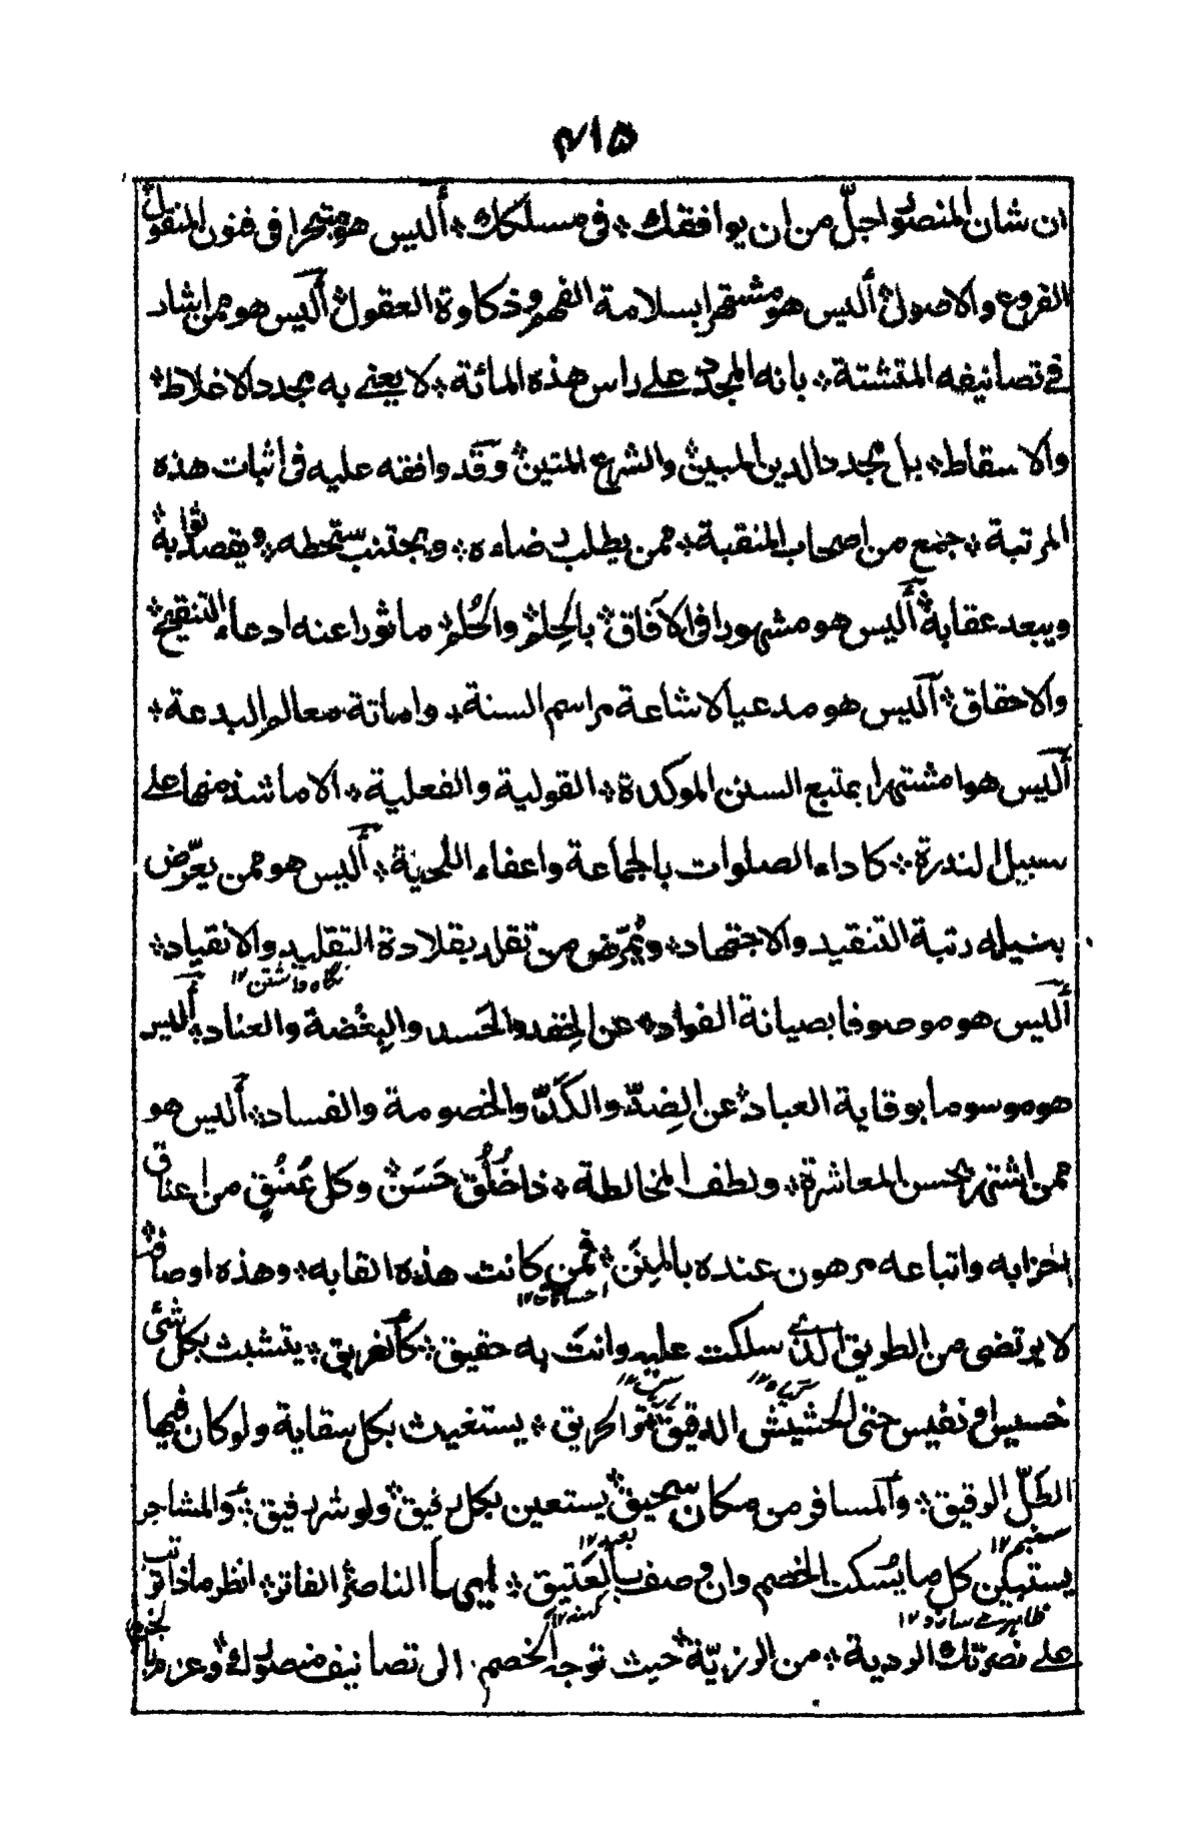 ٢١٥
ان شان المنصور اجلّ من ان يوافقك٭ فى مسلكك٭ أليس هو متبحرا فى فنون المنقول
الفروع والاصول٭ أليس هو مشتهرا بسلامة الفهم وذكاوة العقول٭ أليس هو ممن اشار
فى تصانيفه المتشتة٭ بانه المجدد على راس هذه المائة٭ لا يعنى به مجدد الاغلاط٭
والاسقاط٭ بل مجدد الدين المبين٭ والشرع المتين٭ وقد وافقه عليه فى اثبات هذه
المرتبة٭ جمع من اصحاب المنقبة٭ ممن يطلب رضاءه٭ ويجتنب سخطه٭ ويقصد ثوابه٭
ويبعد عقابه٭ أليس هو مشهورا فى الآفاق٭ بالحِلم٭ والحُلم٭ ماثورا عنه ادعاء التنقيح٭
والاحقاق٭ أليس هو مدعيا لاشاعة مراسم السنة٭ واماتة معالم البدعة٭
أليس هوا مشتهرا بمتبع السنن الموكدة٭ القولية والفعلية٭ الا ما شذ منها على
سبيل الندرة٭ كاداء الصلوات بالجماعة واعفاء اللحية٭ أليس هو ممن يعرّض
بنيله رتبة التنقيد والاجتهاد٭ ويُمرّض من تقلد بقلادة التقليد والانقياد٭
نگاه داشتن ١٢
أليس هو موصوفا بصيانة الفواد٭ عن الحِقد والحَسد والبِغضة والعناد٭ أليس
هو موسوما بوقاية العباد٭ عن الضِدّ والكَدّ والخصومة والفساد٭ أليس هو
ممن اشتهر بحسن المعاشرة٭ ولطف المخالطة٭ ذا خُلُق حَسَن٭ وكل عُنُق من اعناق
احزابه واتباعه مرهون عنده بالمِنَن٭ فمن كانت هذه القابه٭ وهذه اوصافه٭
احسانات ١٢
لا يرتضى من الطريق الذى سلكت عليه وانت به حقيق٭ كالغريق٭ يتشبث بكل شئ
خسيس او نفيس حتى الحشيش الدقيق٭ والحريق٭ يستغيث بكل سقاية ولو كان فيها
الطَلّ الرقيق٭ والمسافر من مكان سحيق٭ يستعين بكل رفيق٭ ولو شر رفيق٭ والمشاجر
بعيد ١٢
يستهكن كل ما يُسكت الخصم وان وصف بالعتيق٭ ايها الناصر الفاتر٭ انظر ماذا ترتب
كهنه ١٢
على نصرتك الردية٭ من الرزيّة٭ حيث توجه الخصم الى تصانيف منصورك٭ وعزم بالجزم